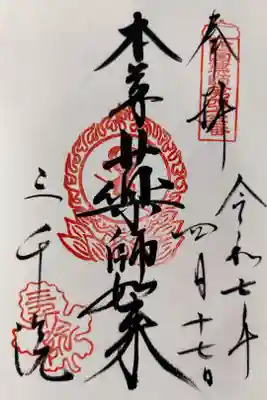 奉拝
令和七年
四月十七日
本尊薬師如来
三千院